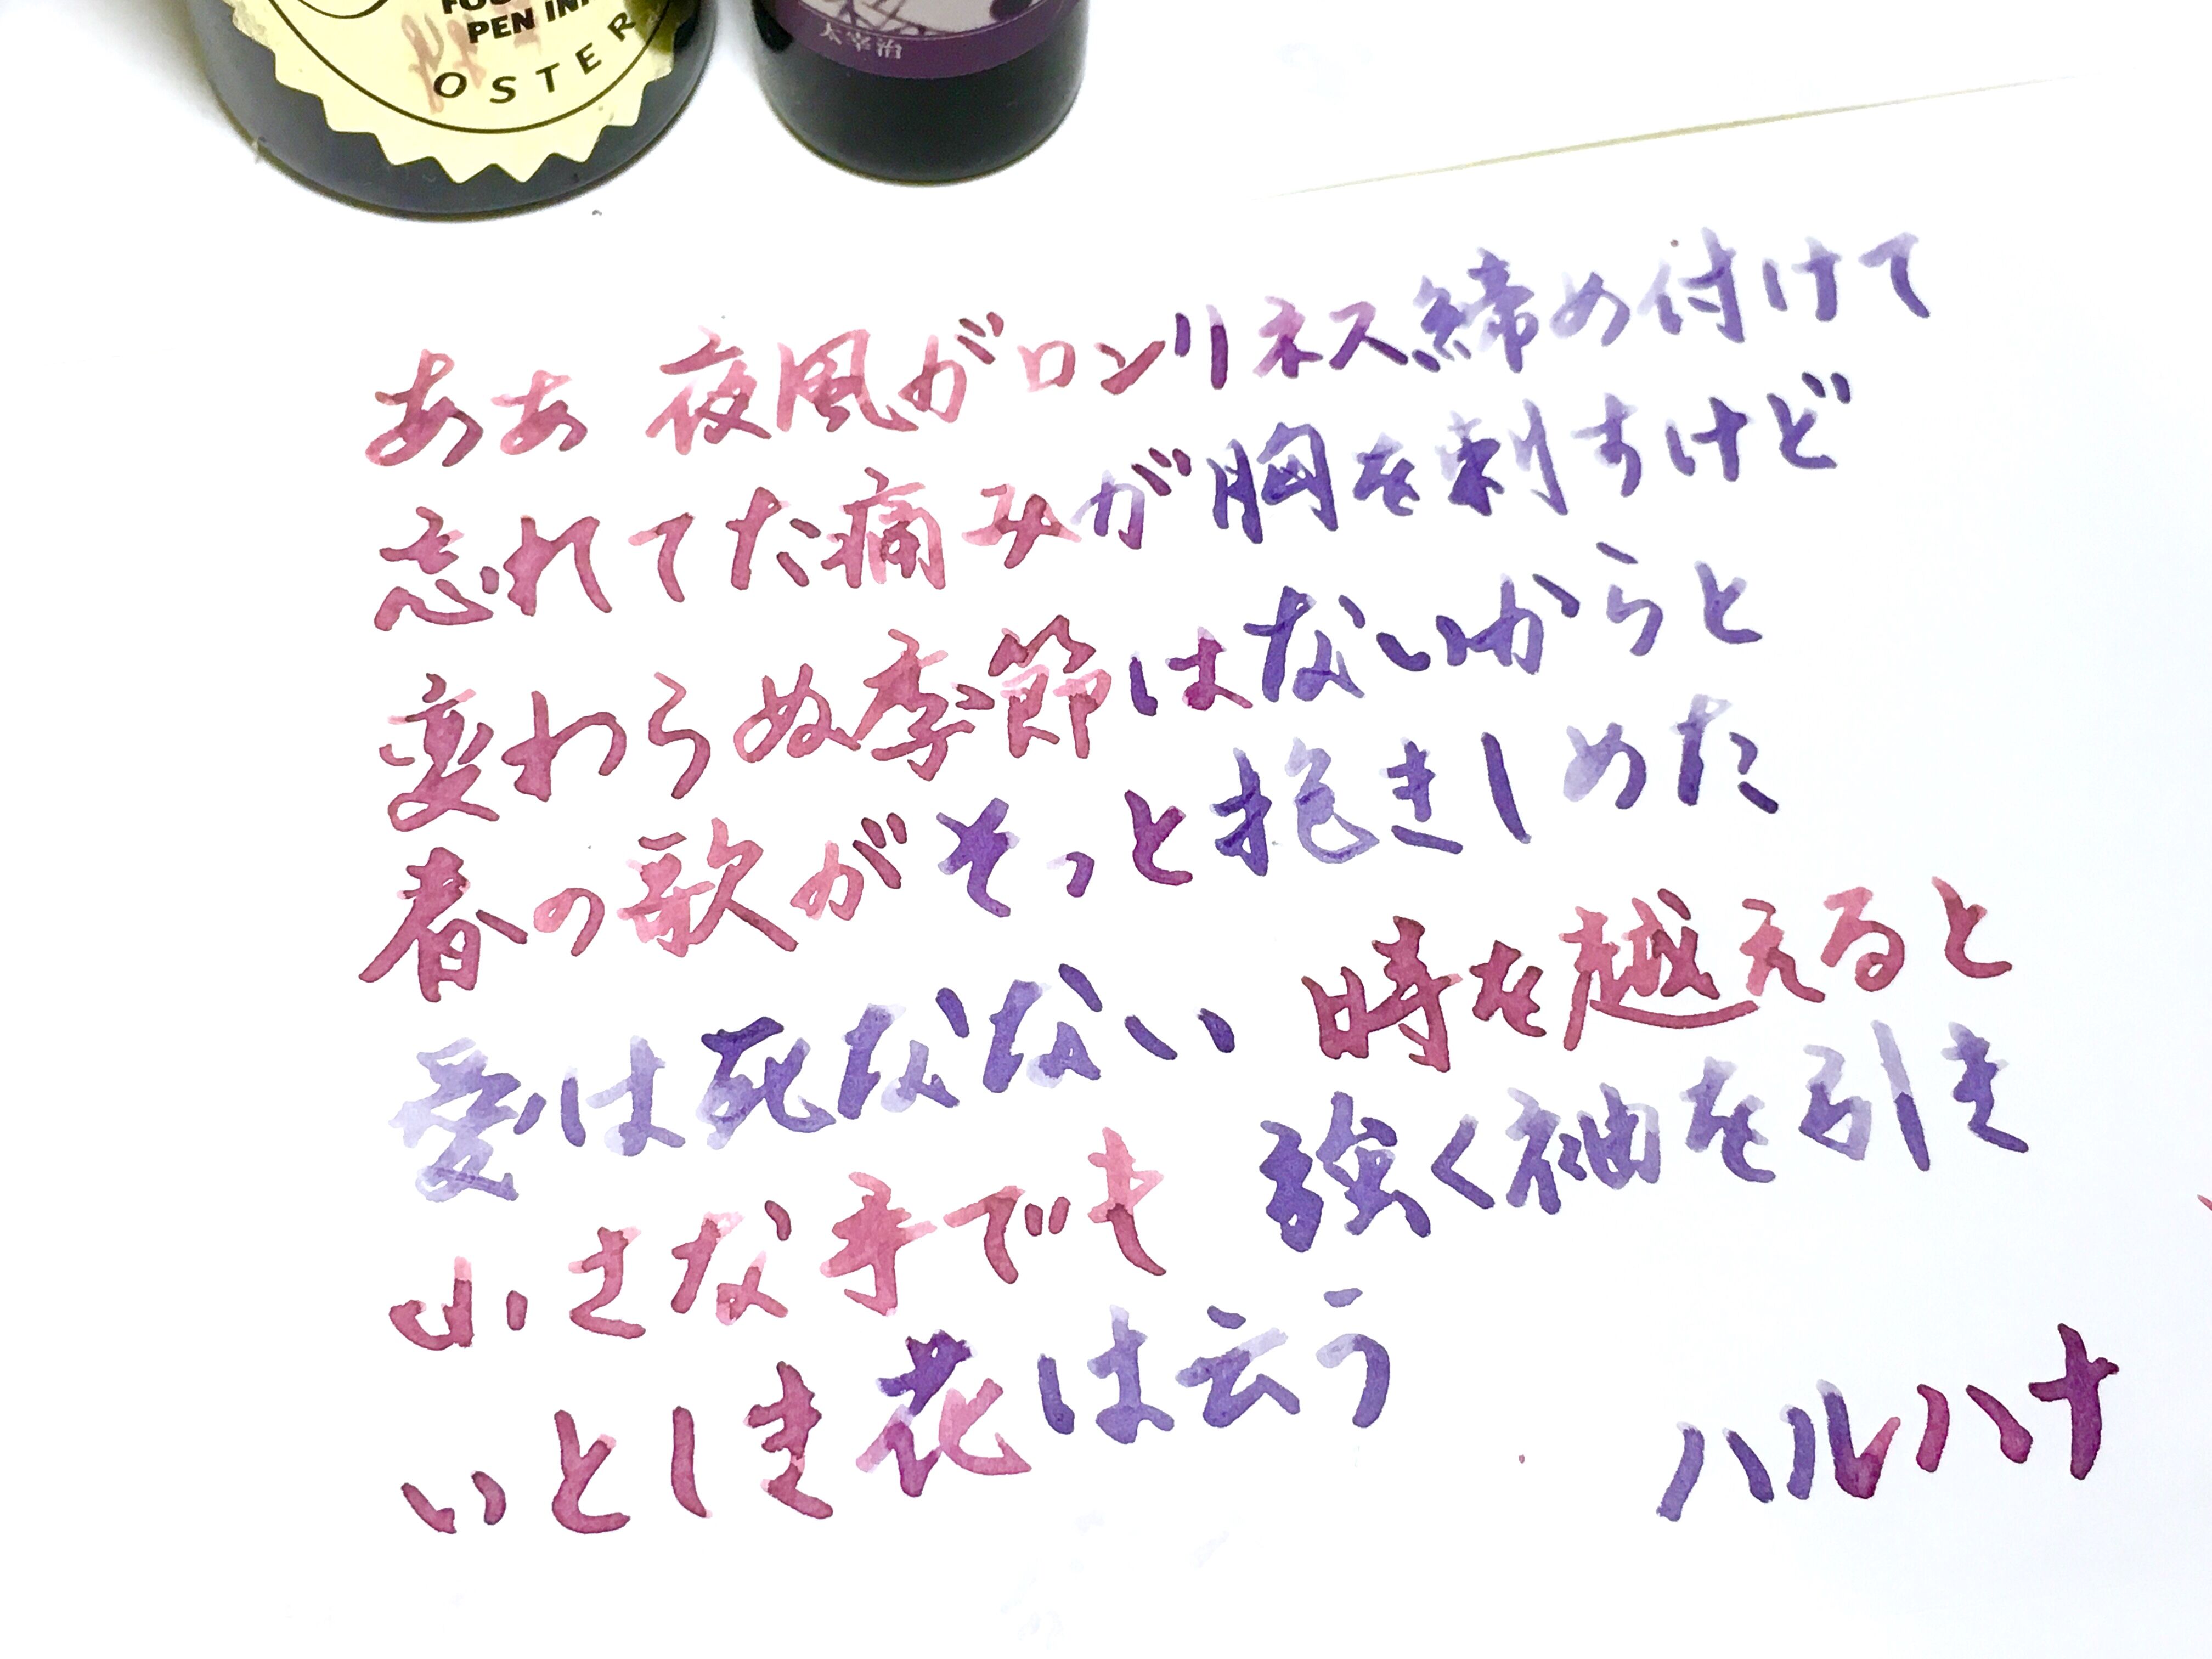 PEN IN
OSTER
太宰治
ああ 夜風がロンリネス締め付けて
忘れてた痛みが胸を刺すけど
変わらぬ季節はないからと
春の歌がそっと抱きしめた
愛は死なない 時を越えると
小さな手でも 強く袖を引き
いとしき花は云う
ハルハナ